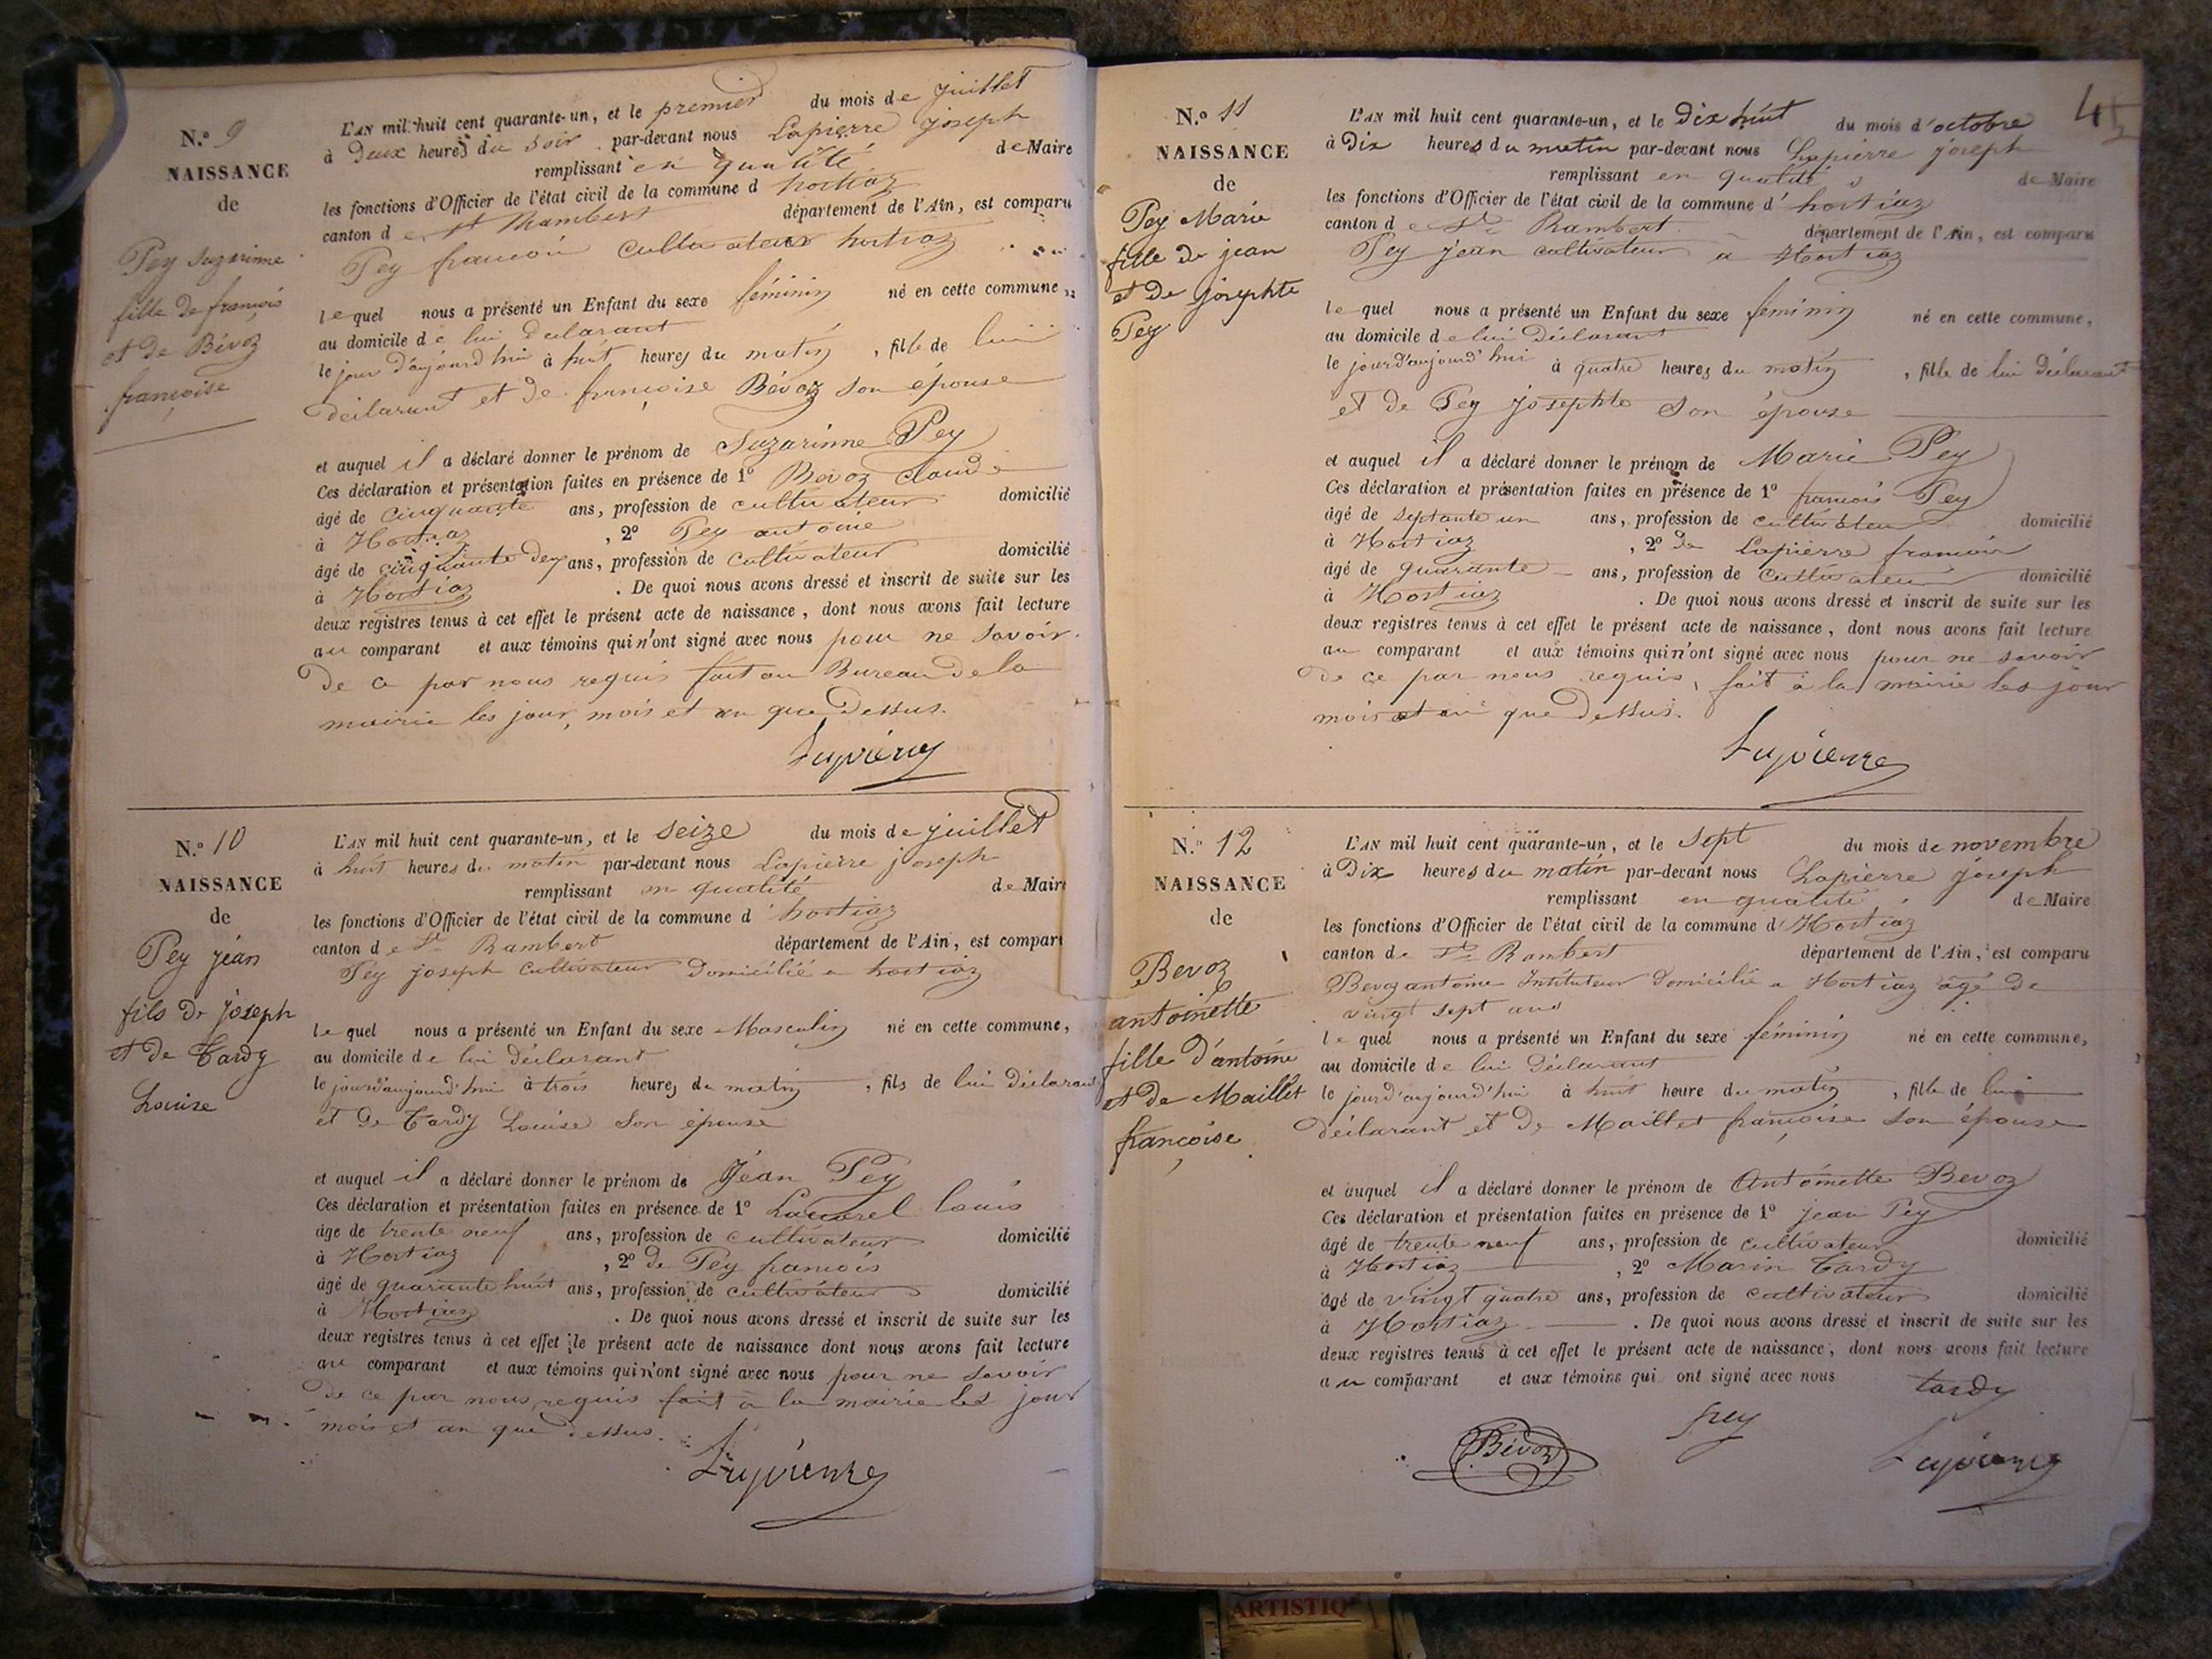 N.º 9
NAISSANCE
de
Pey Suzarinne
fille de françois
et de Bévoz
françoise
L'AN mil huit cent quarante-un, et le premier du mois de juillet
à Deux heures du soir par-devant nous Lapierre joseph
remplissant en qualité de Maire
les fonctions d'Officier de l'état civil de la commune d'hostiaz
canton de St Rambert département de l'Ain, est comparu
Pey françois cultivateur hostiaz
lequel nous a présenté un Enfant du sexe féminin né en cette commune,
au domicile de lui déclarant
le jour d'aujourd'hui à huit heures du matin, fille de lui
déclarant et de françoise Bévoz son épouse
et auquel il a déclaré donner le prénom de Suzarinne Pey
Ces déclaration et présentation faites en présence de 1º Bevoz Claude
âgé de cinquante ans, profession de cultivateur domicilié
à Hostiaz, 2º Pey antoine
âgé de cinquante deux ans, profession de cultivateur domicilié
à Hostiaz. De quoi nous avons dressé et inscrit de suite sur les
deux registres tenus à cet effet le présent acte de naissance, dont nous avons fait lecture
au comparant et aux témoins qui n'ont signé avec nous pour ne savoir
de ce par nous requis fait au Bureau de la
mairie les jour, mois et an que dessus.
Lapierre
N.º 10
NAISSANCE
de
Pey jean
fils de joseph
et de Tardy
Louise
L'AN mil huit cent quarante-un, et le seize du mois de juillet
à huit heures du matin par-devant nous Lapierre joseph
remplissant en qualité de Maire
les fonctions d'Officier de l'état civil de la commune d'hostiaz
canton de St Rambert département de l'Ain, est comparu
Pey joseph cultivateur domicilié a hostiaz
lequel nous a présenté un Enfant du sexe Masculin né en cette commune,
au domicile de lui déclarant
le jourd'aujourd'hui à trois heures du matin, fils de lui déclarant
et de Tardy Louise son épouse
et auquel il a déclaré donner le prénom de Jean Pey
Ces déclaration et présentation faites en présence de 1º louis
âgé de trente neuf ans, profession de cultivateur domicilié
à Hostiaz, 2º de Pey francois
âgé de quarante huit ans, profession de cultivateur domicilié
à Hostiaz. De quoi nous avons dressé et inscrit de suite sur les
deux registres tenus à cet effet le présent acte de naissance dont nous avons fait lecture
au comparant et aux témoins qui n'ont signé avec nous pour ne savoir
de ce par nous requis fait à la mairie les jour
mois et an que dessus.
Lapierre
45
N.º 11
NAISSANCE
de
Pey Marie
fille de jean
et de josephte
Pey
L'AN mil huit cent quarante-un, et le Dix huit du mois d'octobre
à Dix heures du matin par-devant nous Lapierre joseph
remplissant en qualité de Maire
les fonctions d'Officier de l'état civil de la commune d'hostiaz
canton de St Rambert département de l'Ain, est comparu
Pey jean cultivateur a Hostiaz
lequel nous a présenté un Enfant du sexe feminin né en cette commune,
au domicile de lui Déclarant
le jourd'aujourd'hui à quatre heures du matin, fille de lui Déclarant
et de Pey josephte son épouse
et auquel il a déclaré donner le prénom de Marie Pey
Ces déclaration et présentation faites en présence de 1º francois Pey
âgé de septante un ans, profession de cultivateur domicilié
à Hostiaz, 2º de Lapierre francois
âgé de quarante ans, profession de cultivateur domicilié
à Hostiaz. De quoi nous avons dressé et inscrit de suite sur les
deux registres tenus à cet effet le présent acte de naissance, dont nous avons fait lecture
au comparant et aux témoins qui n'ont signé avec nous pour ne savoir
de ce par nous requis, fait à la mairie les jour
mois et an que dessus.
Lapierre
N.º 12
NAISSANCE
de
Bevoz
antoinette
fille d'antoine
et de Maillet
françoise
L'AN mil huit cent quarante-un, et le sept du mois de novembre
à Dix heures du matin par-devant nous Lapierre joseph
remplissant en qualité de Maire
les fonctions d'Officier de l'état civil de la commune d'Hostiaz
canton de St Rambert département de l'Ain, est comparu
Bevoz antoine Instituteur domicilié a Hostiaz agé de
vingt sept ans
lequel nous a présenté un Enfant du sexe féminin né en cette commune,
au domicile de lui Déclarant
le jourd'aujourd'hui à huit heure du matin, fille de lui
déclarant et de Maillet françoise son épouse
et auquel il a déclaré donner le prénom de Antoinette Bevoz
Ces déclaration et présentation faites en présence de 1º jean Pey
âgé de trente neuf ans, profession de cultivateur domicilié
à Hostiaz, 2º Marin Tardy
âgé de vingt quatre ans, profession de cultivateur domicilié
à Hostiaz. De quoi nous avons dressé et inscrit de suite sur les
deux registres tenus à cet effet le présent acte de naissance, dont nous avons fait lecture
au comparant et aux témoins qui ont signé avec nous
tardy
pey
Bévoz
Lapierre
ARTISTIQ